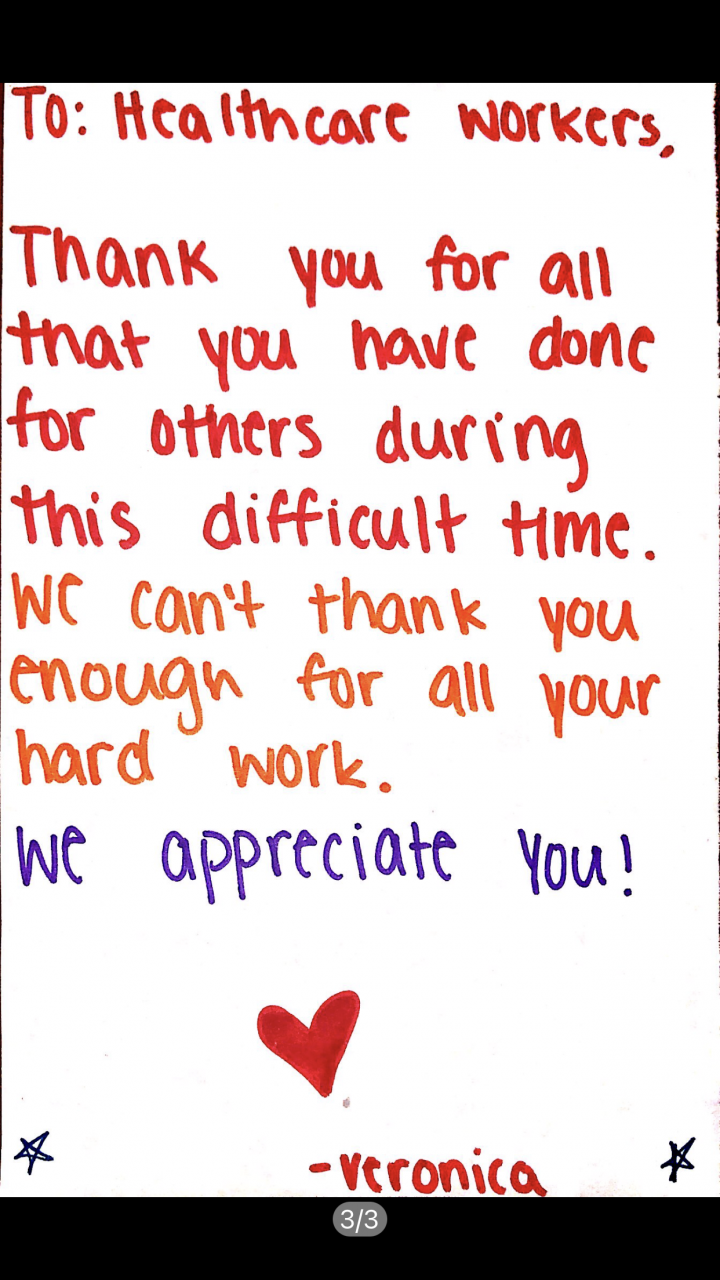 To: Healthcare workers,
Thank you for all
that you have done
for others during
this difficult time.
We can't thank you
enough for all your
hard work.
We appreciate You!
-veronica
3/3